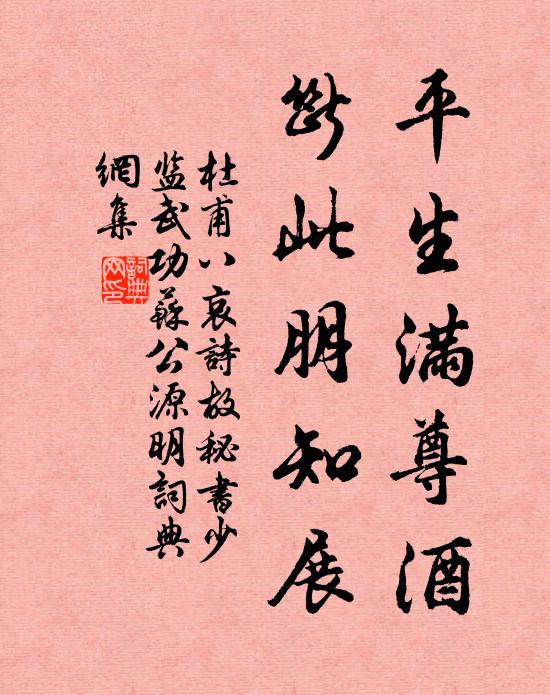 平生满尊酒
断此朋知展
杜甫八哀詩故秘書少
监武功蘇公源明詞典
網集
詞典網印